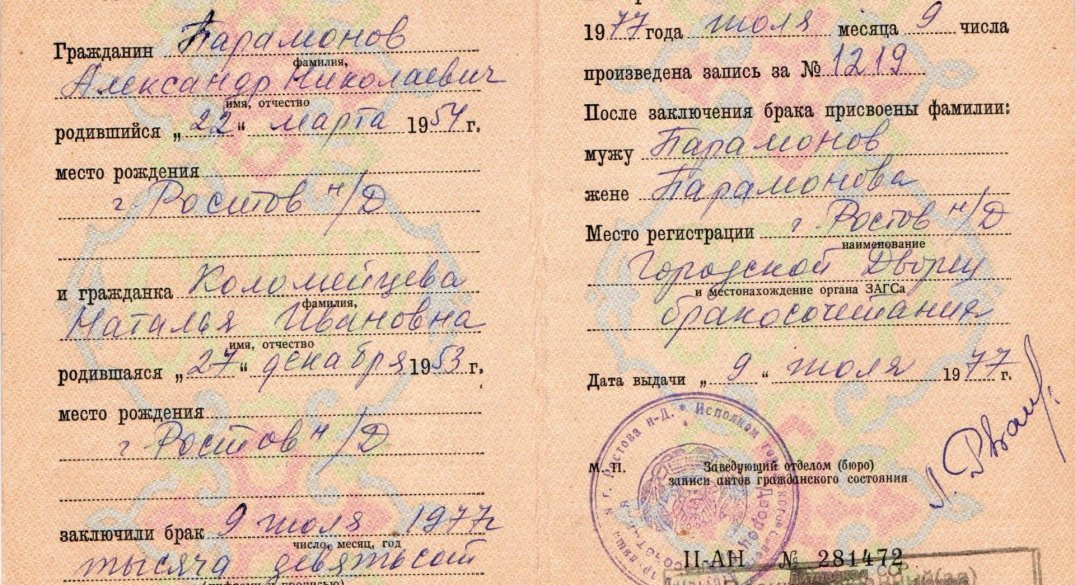 Гражданин Парамонов
фамилия,
Александр Николаевич
имя, отчество
родившийся „ 22 “ марта 1954 г.
место рождения
г. Ростов н/Д
и гражданка Коломейцева
фамилия,
Наталья Ивановна
имя, отчество
родившаяся „ 27 “ декабря 1953 г.
место рождения
г. Ростов н/Д
заключили брак 9 июля 1977г
число, месяц, год
тысяча девятьсот
1977 года июля месяца 9 числа
произведена запись за № 1219
После заключения брака присвоены фамилии:
мужу Парамонов
жене Парамонова
Место регистрации г. Ростов н/Д
наименование
Городской Дворец
и местонахождение органа ЗАГСа
бракосочетания
Дата выдачи „ 9 “ июля 1977 г.
М. П.
Заведующий отделом (бюро)
записи актов гражданского состояния
II-АН № 281472
г. Ростова н-Д. * Исполком